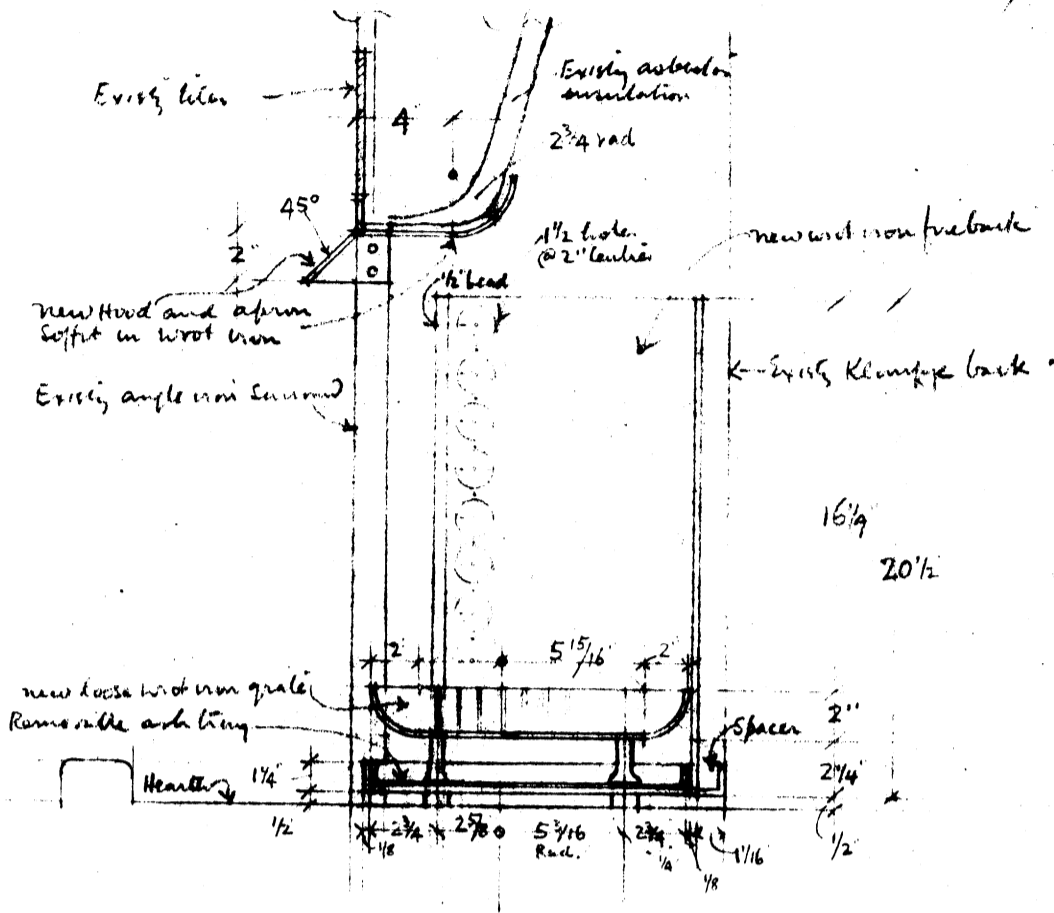 Existg tiles
Existg asbestos
insulation
4
2¾ rad
45°
2"
1½ holes
@ 2" centres
new wrot iron fireback
½" bead
new Hood and apron
Soffit in wrot iron
Existg back
Existg angle iron Surround
16¼
20½
2"
5 15/16
2"
new loose wrot iron grate
Removable ash tray
Spacer
2"
Hearth
1¼"
2¼"
½
⅛
2¾
2⅝
5 3/16
Rad.
2¾
¼
⅛
1 1/16
½